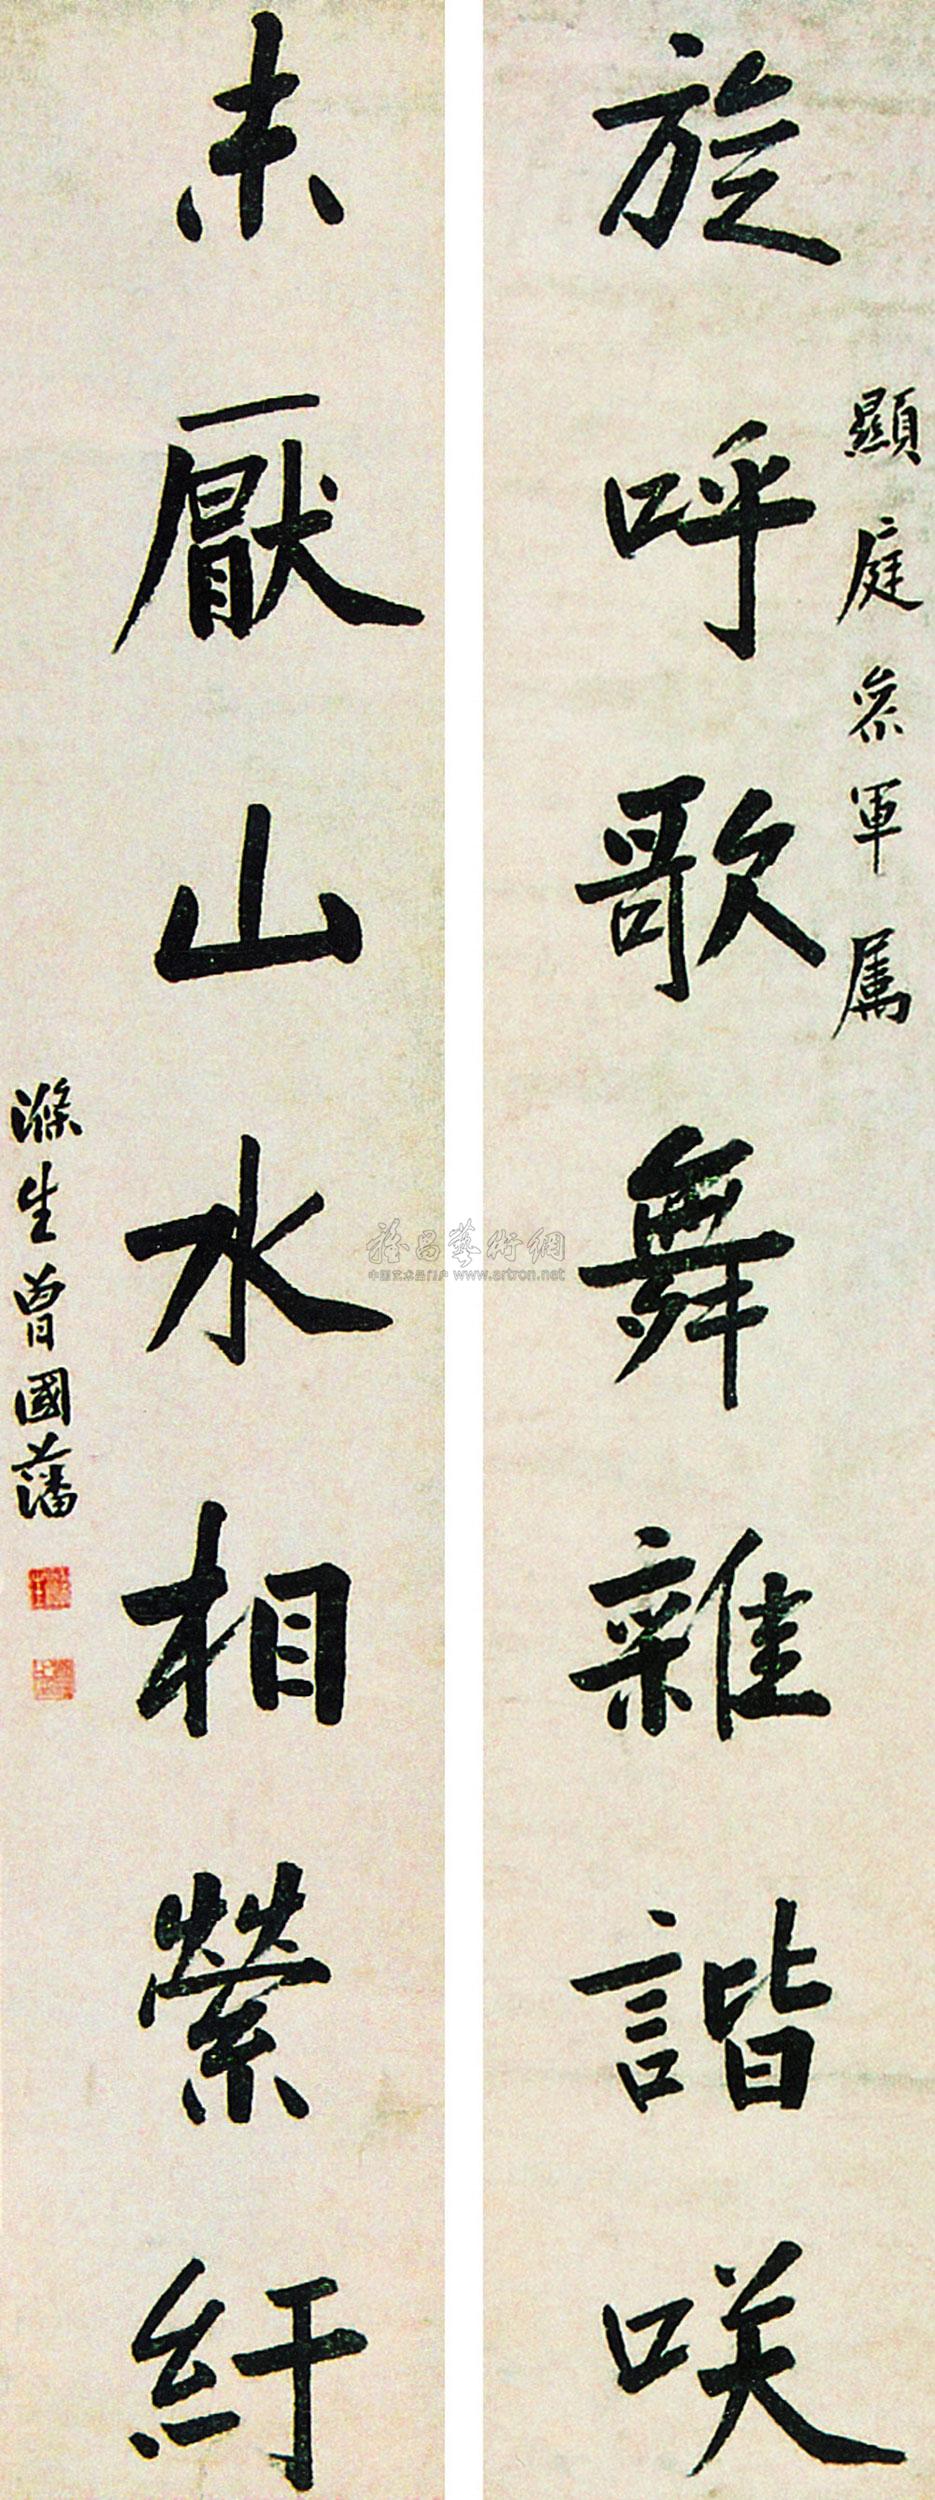 旋呼歌舞雜詼咲
顯庭參軍屬
未厭山水相縈紆
滌生曾國藩
雅昌藝術網
中国艺术品门户 www.artron.net